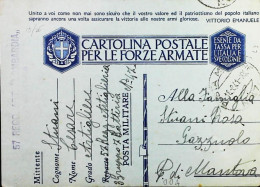 Unito a voi come non mai sono sicuro che il vostro valore ed il patriottismo del popolo italiano
sapranno ancora una volta assicurare la vittoria alle nostre armi gloriose. VITTORIO EMANUELE
CARTOLINA POSTALE
PER LE FORZE ARMATE
ESENTE DA
TASSA PER
L'ITALIA E
POSTA MILITARE N° 47
Mittente
Cognome Stuani
Nome Cesare
Grado Artigliere
Reparto
Alla Famiglia
Stuani Rosa
Gazzuolo
P. di Mantova